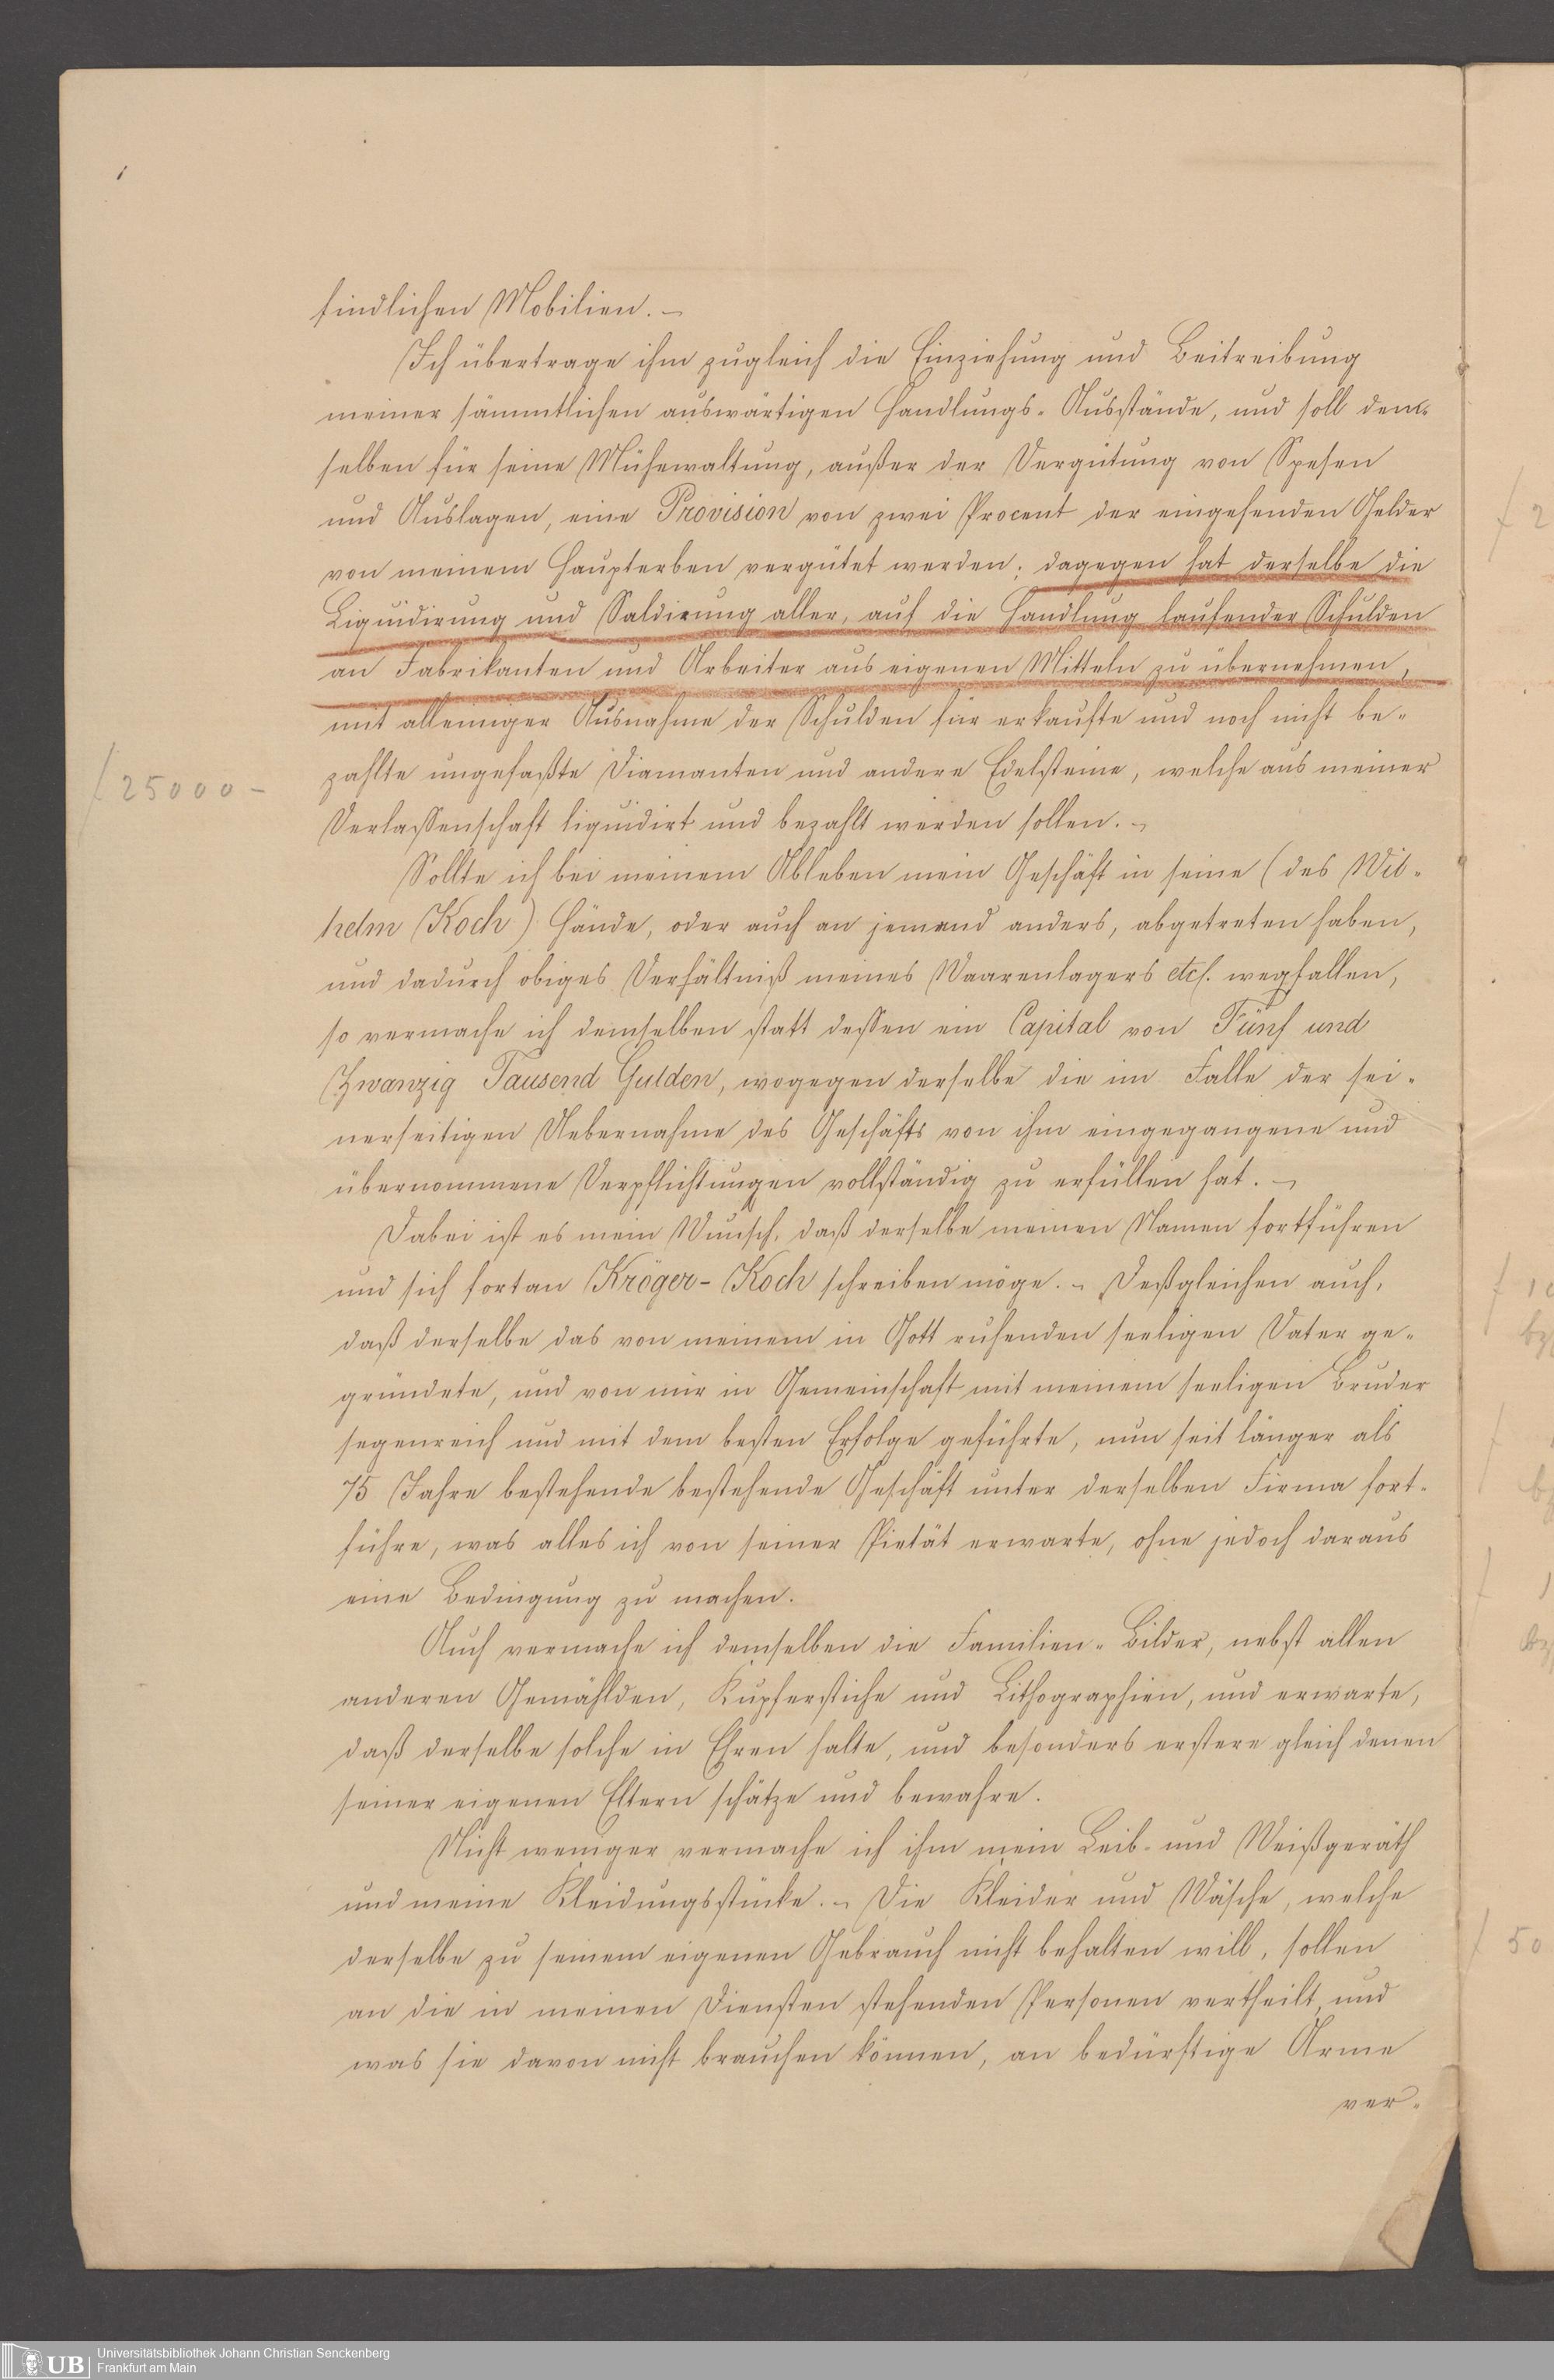 findlichen Mobilien. –
Ich übertrage ihm zugleich die Einziehung und Beitreibung
meiner sämmtlichen auswärtigen Handlungs-Ausstände, und soll dem-
selben für seine Mühewaltung, außer der Vergütung von Spesen
und Auslagen, eine Provision von zwei Procent der eingehenden Gelder
von meinem Haupterben vergütet werden; dagegen hat derselbe die
Liquidirung und Saldirung aller, auf die Handlung laufender Schulden
an Fabrikanten und Arbeiter aus eigenen Mitteln zu übernehmen,
mit alleiniger Ausnahme der Schulden für erkaufte und noch nicht be-
zahlte ungefaßte Diamanten und andere Edelsteine, welche aus meiner
f 25000 –
Verlassenschaft liquidirt und bezahlt werden sollen. –
Sollte ich bei meinem Ableben mein Geschäft in seine (des Wil-
helm Koch) Hände, oder auch an jemand anders, abgetreten haben,
und dadurch obiges Verhältniß meines Waarenlagers etc. wegfallen,
so vermache ich demselben statt dessen ein Capital von Fünf und
Zwanzig Tausend Gulden, wogegen derselbe die im Falle der sei-
nerseitigen Uebernahme des Geschäfts von ihm eingegangene und
übernommene Verpflichtungen vollständig zu erfüllen hat. –
Dabei ist es mein Wunsch, daß derselbe meinen Namen fortführen
und sich fortan Kröger-Koch schreiben möge. – Deßgleichen auch,
daß derselbe das von meinem in Gott ruhenden seeligen Vater ge-
gründete, und von mir in Gemeinschaft mit meinem seeligen Bruder
segenreich und mit dem besten Erfolge geführte, nun seit länger als
75 Jahre bestehende bestehende Geschäft unter derselben Firma fort-
führe, was alles ich von seiner Pietät erwarte, ohne jedoch daraus
eine Bedingung zu machen.
Auch vermache ich demselben die Familien-Bilder, nebst allen
anderen Gemählden, Kupferstiche und Lithographien, und erwarte,
daß derselbe solche in Ehren halte, und besonders erstere gleich denen
seiner eigenen Eltern schätze und bewahre.
Nicht weniger vermache ich ihm mein Leib- und Weißgeräth
und meine Kleidungsstücke. – Die Kleider und Wäsche, welche
derselbe zu seinem eigenen Gebrauch nicht behalten will, sollen
an die in meinen Diensten stehenden Personen vertheilt, und
was sie davon nicht brauchen können, an bedürftige Arme
ver-
f 2
f 50
UB
Universitätsbibliothek Johann Christian Senckenberg
Frankfurt am Main